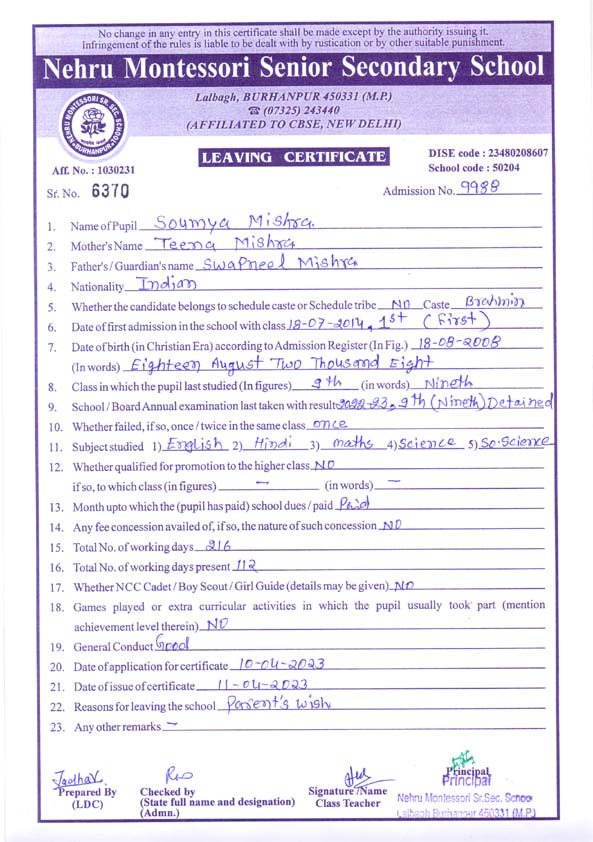 No change in any entry in this certificate shall be made except by the authority issuing it.
Infringement of the rules is liable to be dealt with by rustication or by other suitable punishment.
Nehru Montessori Senior Secondary School
Lalbagh, BURHANPUR 450331 (M.P.)
☎ (07325) 243440
(AFFILIATED TO CBSE, NEW DELHI)
NEHRU MONTESSORI SR. SEC. SCHOOL
BURHANPUR
LEAVING CERTIFICATE
DISE code : 23480208607
School code : 50204
Aff. No. : 1030231
Sr. No. 6370
Admission No. 9988
1. Name of Pupil Soumya Mishra.
2. Mother's Name Teena Mishra
3. Father's / Guardian's name Swapneel Mishra
4. Nationality Indian
5. Whether the candidate belongs to schedule caste or Schedule tribe NO Caste Brahmin
6. Date of first admission in the school with class 18-07-2014, 1st (First)
7. Date of birth (in Christian Era) according to Admission Register (In Fig.) 18-08-2008
(In words) Eighteen August Two Thousand Eight
8. Class in which the pupil last studied (In figures) 9th (in words) Nineth
9. School / Board Annual examination last taken with result 2022-23, 9th (Nineth) Detained
10. Whether failed, if so, once / twice in the same class once
11. Subject studied 1) English 2) Hindi 3) maths 4) Science 5) So. Science
12. Whether qualified for promotion to the higher class NO
if so, to which class (in figures) — (in words) —
13. Month upto which the (pupil has paid) school dues / paid Paid
14. Any fee concession availed of, if so, the nature of such concession NO
15. Total No. of working days 216
16. Total No. of working days present 112
17. Whether NCC Cadet / Boy Scout / Girl Guide (details may be given) NO
18. Games played or extra curricular activities in which the pupil usually took part (mention
achievement level therein) NO
19. General Conduct Good
20. Date of application for certificate 10-04-2023
21. Date of issue of certificate 11-04-2023
22. Reasons for leaving the school Parent's wish
23. Any other remarks —
Jadhav
Prepared By
(LDC)
Checked by
(State full name and designation)
(Admn.)
Signature /Name
Class Teacher
Principal
Principal
Nehru Montessori Sr.Sec. School
Lalbagh Burhanpur 450331 (M.P.)